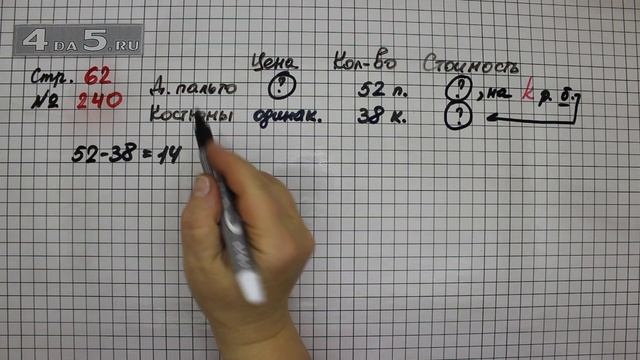 4DA5.RU
Стр. 62
№ 240
Цена Кол-во Стоимость
Д. пальто ? 52 п. ?, на k р. б.
Костюмы одинак. 38 к. ?
52-38=14